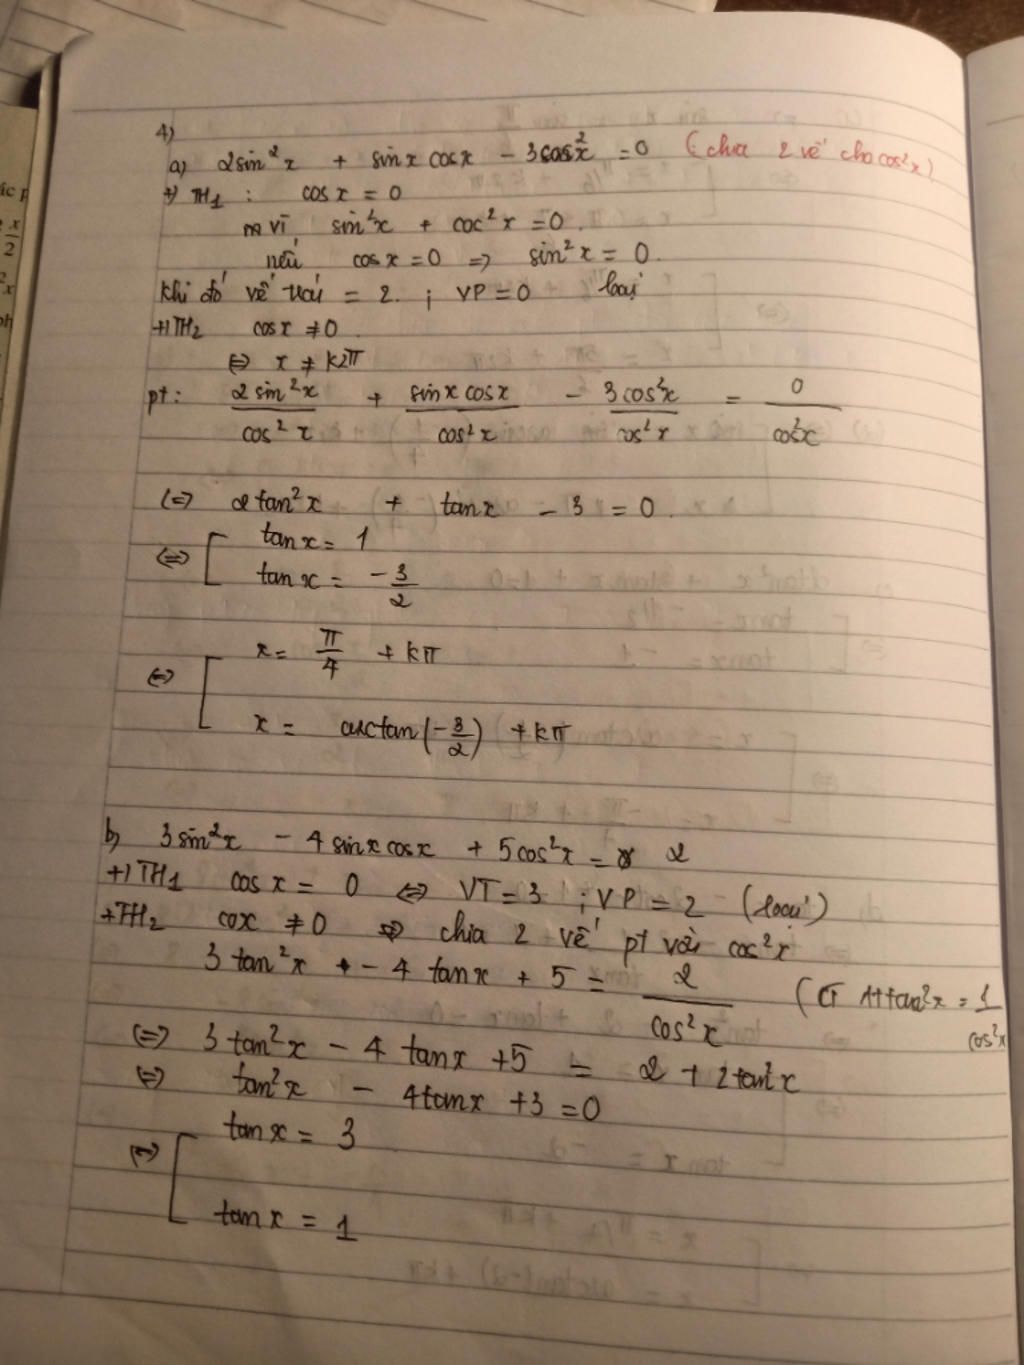 4)
a) 2sin²x + sinx cosx - 3cos²x = 0 (chia 2 vế cho cos²x)
+) TH₁ : cosx = 0
vì sin²x + coc²x = 0.
nếu cosx = 0 => sin²x = 0.
Khi đó vế trái = 2. ; VP = 0 loại
+) TH₂ cosx ≠ 0.
<=> x ≠ k2π
pt: 2sin²x/cos²x + sinx cosx/cos²x - 3cos²x/cos²x = 0/cos²x
(=) 2tan²x + tanx - 3 = 0.
(=) [ tanx = 1
tanx = -3/2
(=) [ x = π/4 + kπ
x = arctan(-3/2) + kπ
b) 3sin²x - 4sinx cosx + 5cos²x = 2
+) TH₁ cosx = 0 <=> VT = 3 ; VP = 2 (loại)
+TH₂ cox ≠ 0 => chia 2 vế pt với cos²x
3tan²x + - 4 tanx + 5 = 2/cos²x (CT 1+tan²x = 1/cos²x
(=) 3tan²x - 4 tanx + 5 = 2 + 2tan²x
(=) tan²x - 4tanx + 3 = 0
(=) [ tanx = 3
tanx = 1